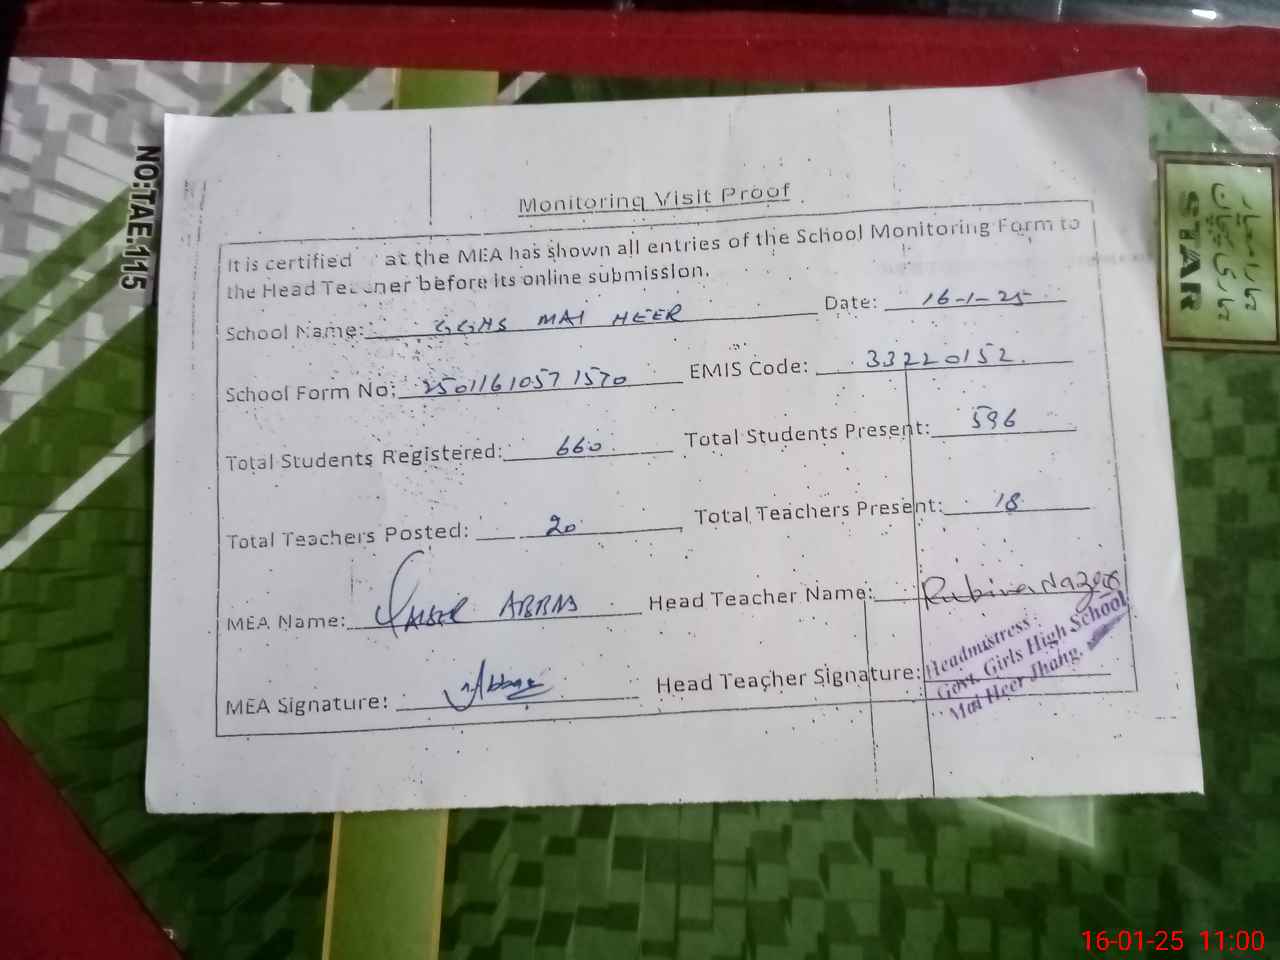 Monitoring Visit Proof
It is certified at the MEA has shown all entries of the School Monitoring Form to
the Head before its online submission.
School Name: GGHS MAI HEER Date: 16-1-25
School Form No: 2501161057 1570 EMIS Code: 33220152
Total Students Registered: 660 Total Students Present: 596
Total Teachers Posted: 20 Total Teachers Present: 18
MEA Name: ABBAS Head Teacher Name: Rubina
MEA Signature: Abbas Head Teacher Signature:
Headmistress
Govt. Girls High School
Mai Heer Jhang.
NO:TAE.115
STAR
16-01-25 11:00